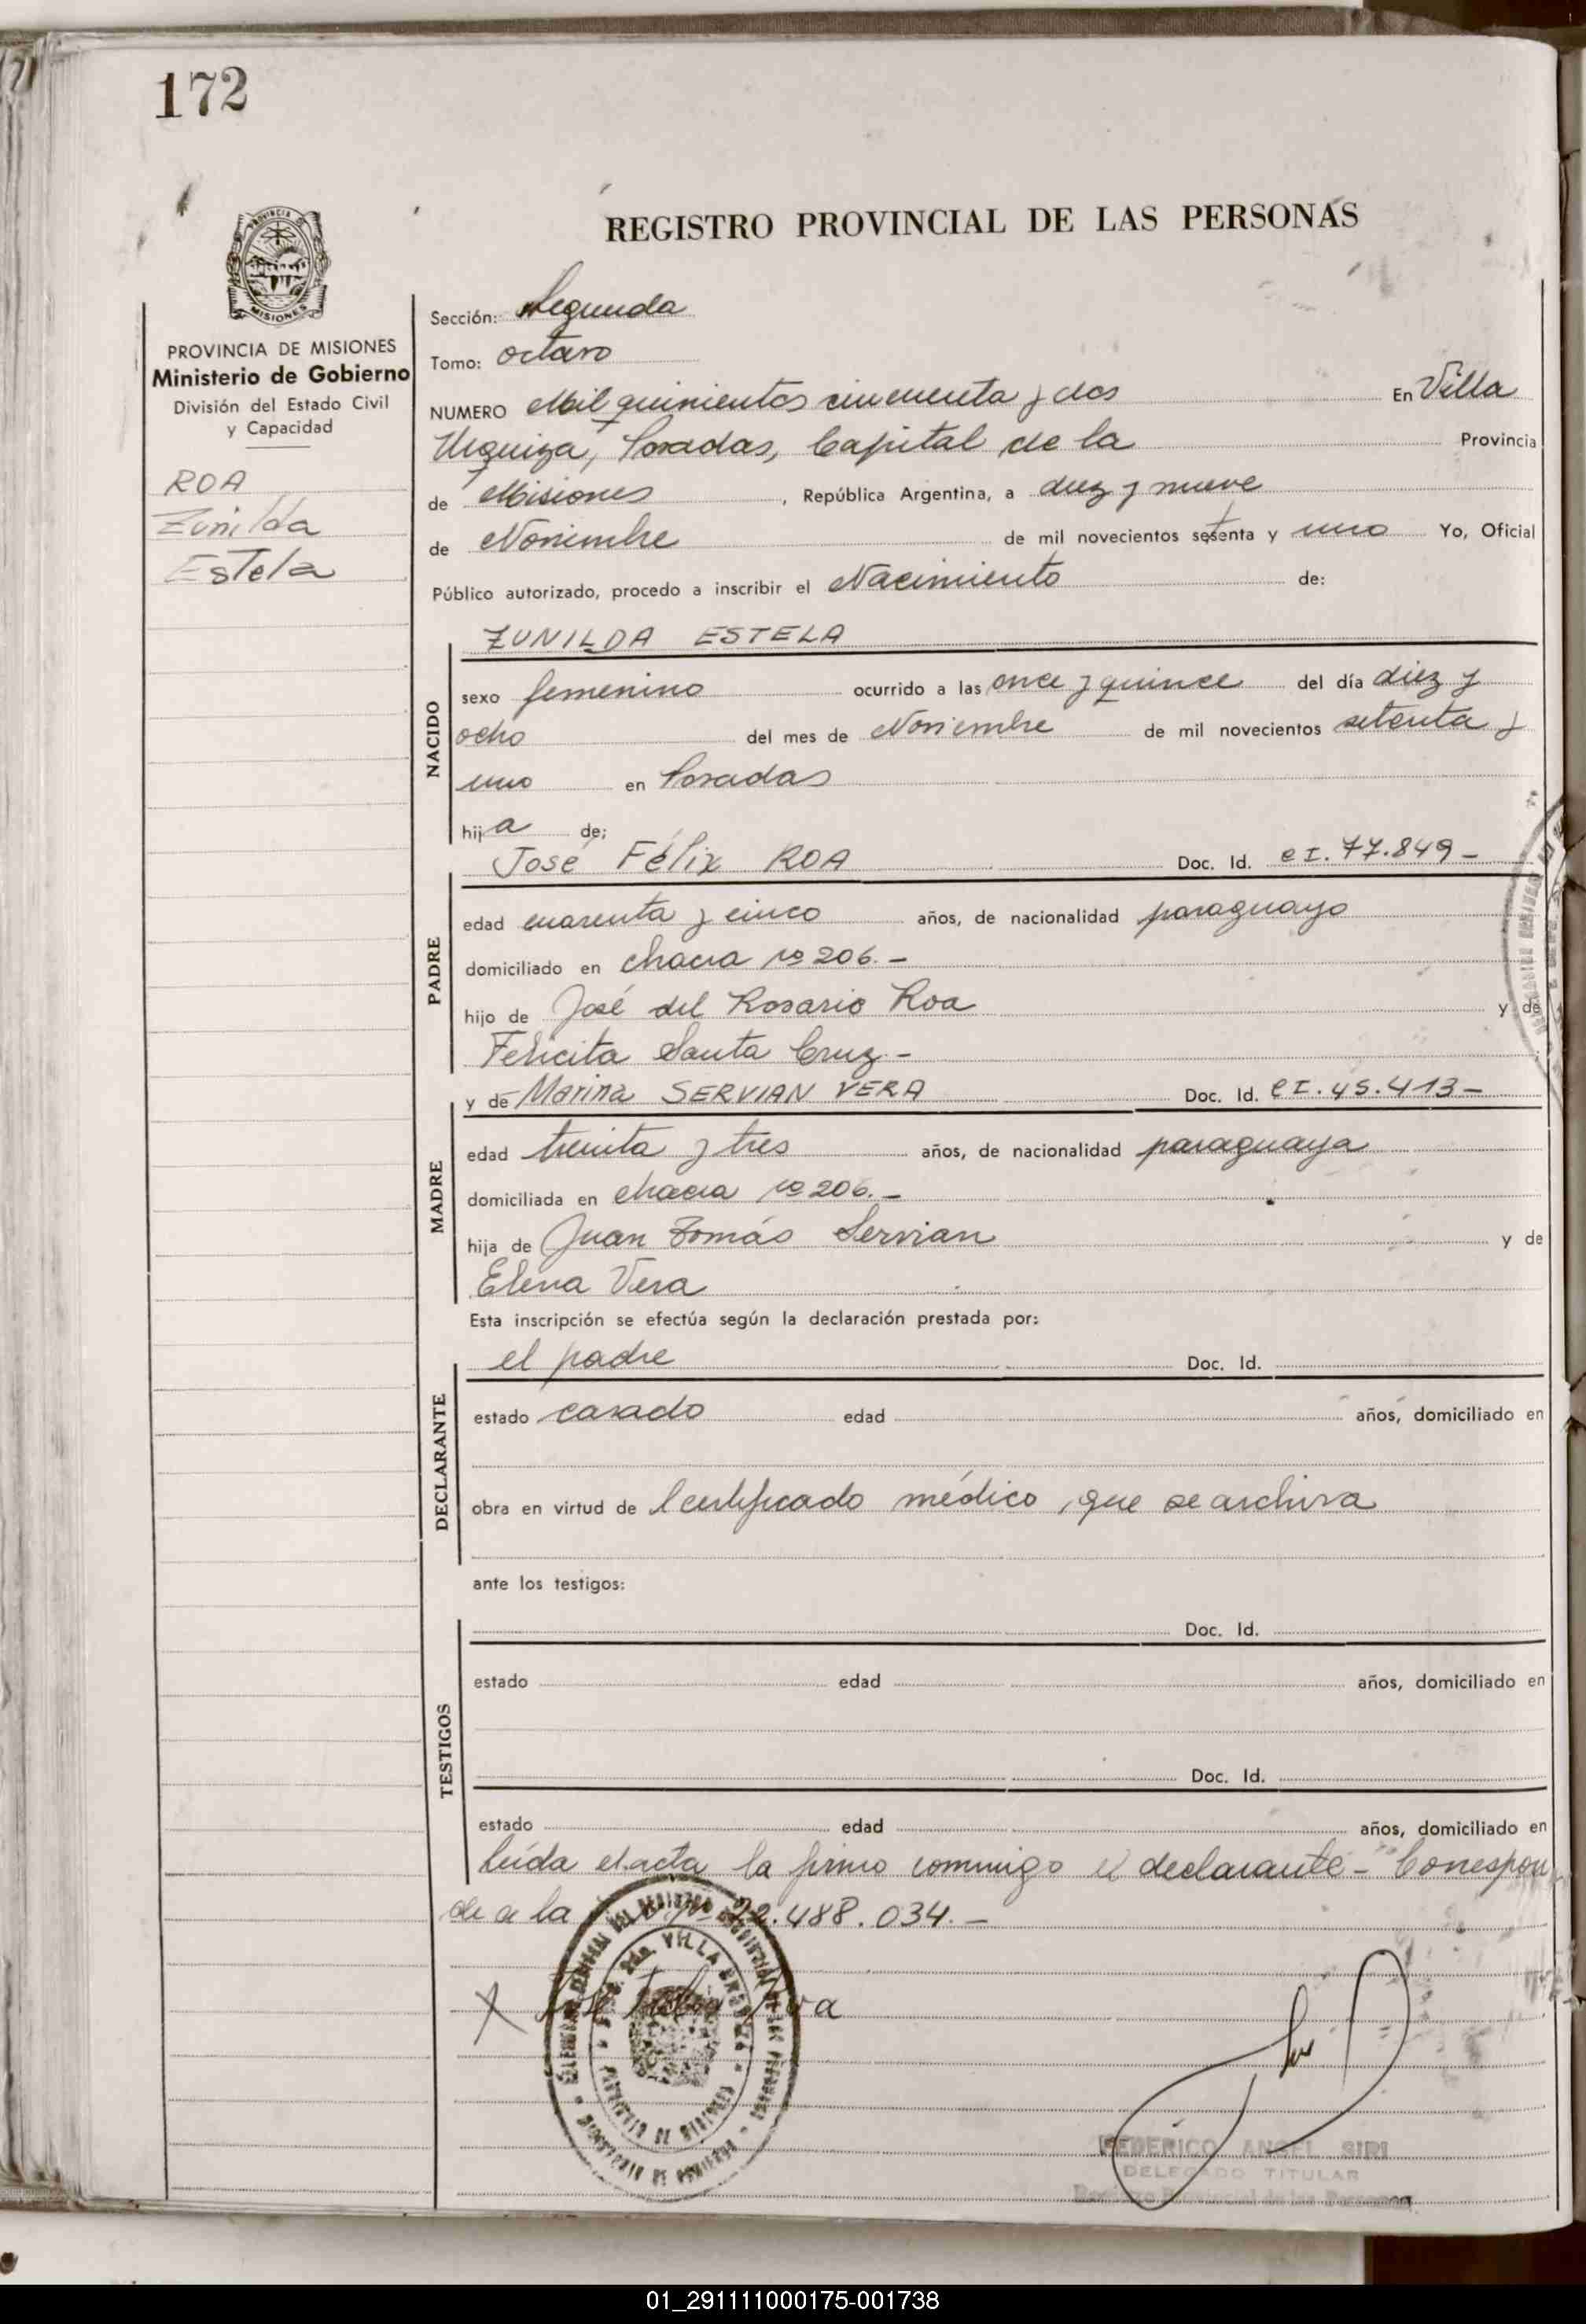 172
REGISTRO PROVINCIAL DE LAS PERSONAS
MISIONES
PROVINCIA DE MISIONES
Ministerio de Gobierno
División del Estado Civil
y Capacidad
ROA
Zunilda
Estela
Sección: Segunda
Tomo: octavo
NUMERO Mil quinientos cincuenta y dos En Villa
Urquiza, Posadas, Capital de la Provincia
de Misiones, República Argentina, a diez y nueve
de Noviembre de mil novecientos setenta y uno Yo, Oficial
Público autorizado, procedo a inscribir el Nacimiento de:
ZUNILDA ESTELA
NACIDO
sexo femenino ocurrido a las once y quince del día diez y
ocho del mes de Noviembre de mil novecientos setenta y
uno en Posadas
hija de:
José Félix ROA Doc. Id. CI. 77.849-
PADRE
edad cuarenta y cinco años, de nacionalidad paraguayo
domiciliado en chacra nº 206.-
hijo de José del Rosario Roa y de
Felicita Santa Cruz-
y de Marina SERVIAN VERA Doc. Id. CI. 45.413-
MADRE
edad treinta y tres años, de nacionalidad paraguaya
domiciliada en chacra nº 206.-
hija de Juan Tomás Servian y de
Elena Vera
Esta inscripción se efectúa según la declaración prestada por:
el padre Doc. Id.
DECLARANTE
estado casado edad años, domiciliado en
obra en virtud de certificado médico, que se archiva
ante los testigos:
Doc. Id.
TESTIGOS
estado edad años, domiciliado en
Doc. Id.
estado edad años, domiciliado en
Leída el acta la firma conmigo el declarante- Correspon
de a la 22.488.034.-
X José Roa
FEDERICO ANGEL SIRI
DELEGADO TITULAR
Registro Provincial de las Personas
01_291111000175-001738